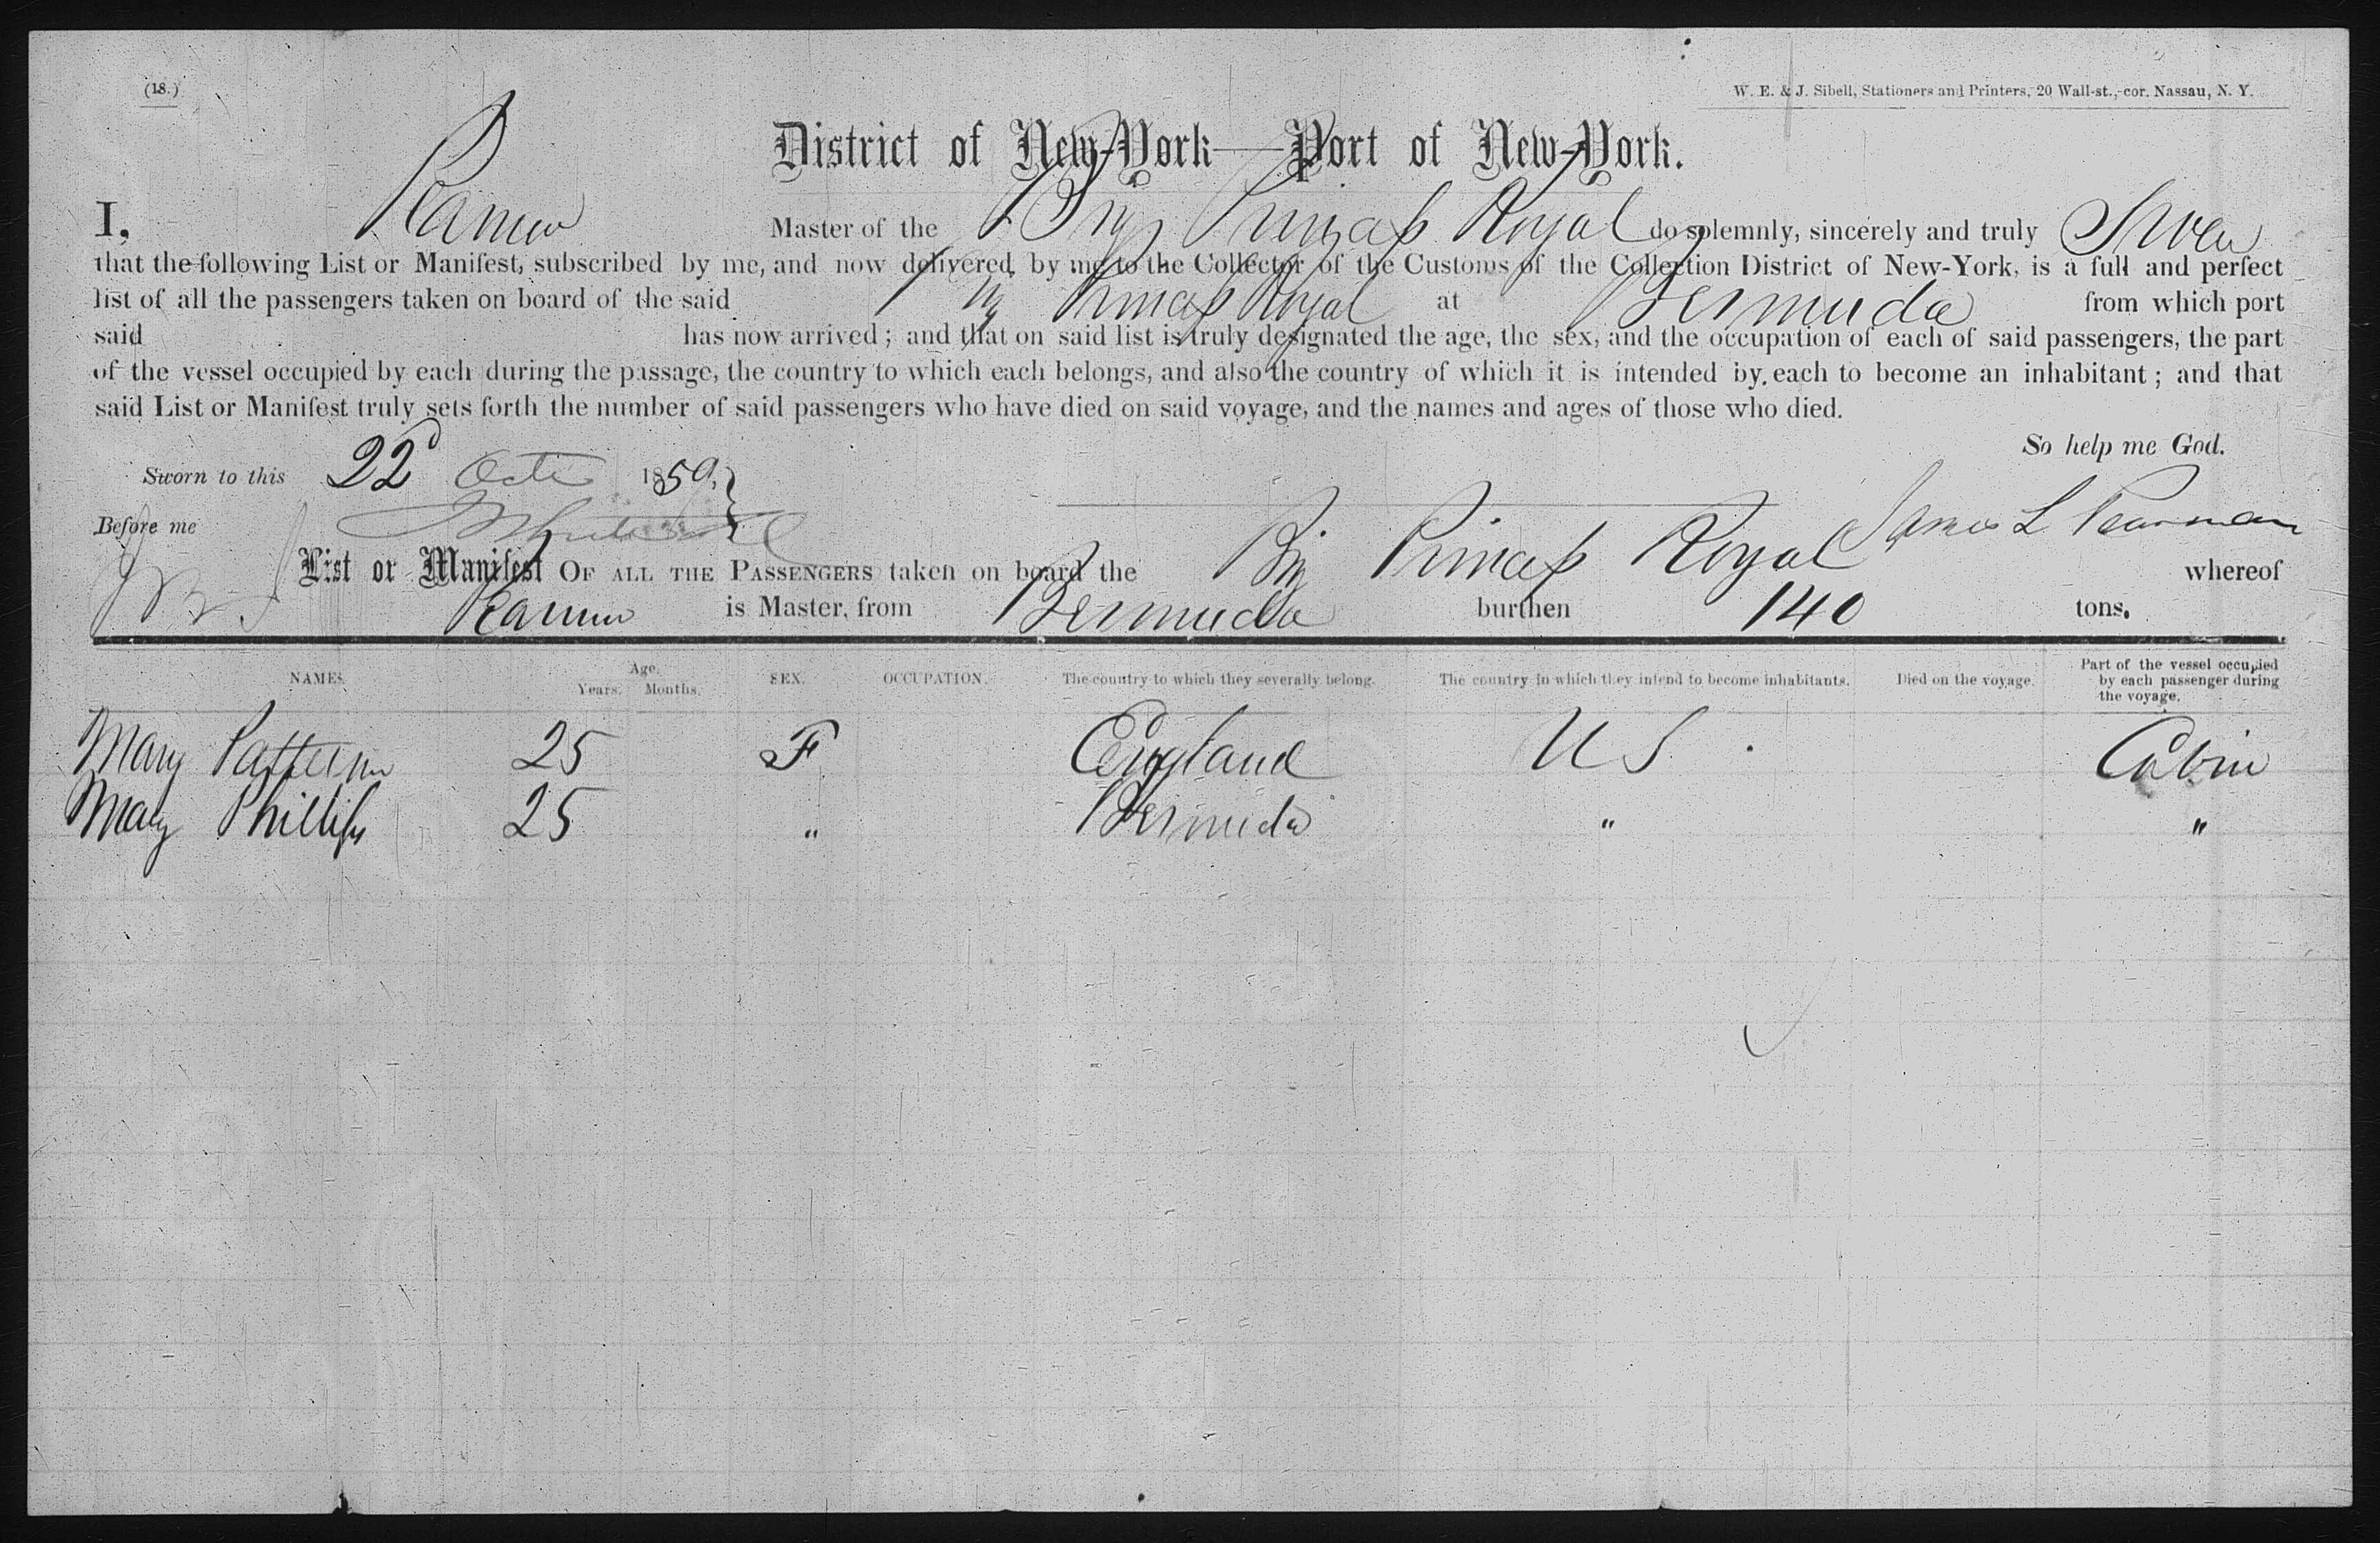 (18.)
W. E. & J. Sibell, Stationers and Printers, 20 Wall-st., cor. Nassau, N. Y.
District of New-York—Port of New-York.
I, Master of the Brig Princess Royal do solemnly, sincerely and truly Swear
that the following List or Manifest, subscribed by me, and now delivered by me to the Collector of the Customs of the Collection District of New-York, is a full and perfect
list of all the passengers taken on board of the said Brig Princess Royal at Bermuda from which port
said has now arrived; and that on said list is truly designated the age, the sex, and the occupation of each of said passengers, the part
of the vessel occupied by each during the passage, the country to which each belongs, and also the country of which it is intended by each to become an inhabitant; and that
said List or Manifest truly sets forth the number of said passengers who have died on said voyage, and the names and ages of those who died.
So help me God.
Sworn to this 22d Octr 1859,
Before me
James L Pearman
List or Manifest OF ALL THE PASSENGERS taken on board the Brig Princess Royal whereof
is Master, from Bermuda burthen 140 tons.
NAMES. Age. Years. Months. SEX. OCCUPATION. The country to which they severally belong. The country in which they intend to become inhabitants. Died on the voyage. Part of the vessel occupied by each passenger during the voyage.
Mary 25 F England U S. Cabin
Mary Phillips 25 " Bermuda " "